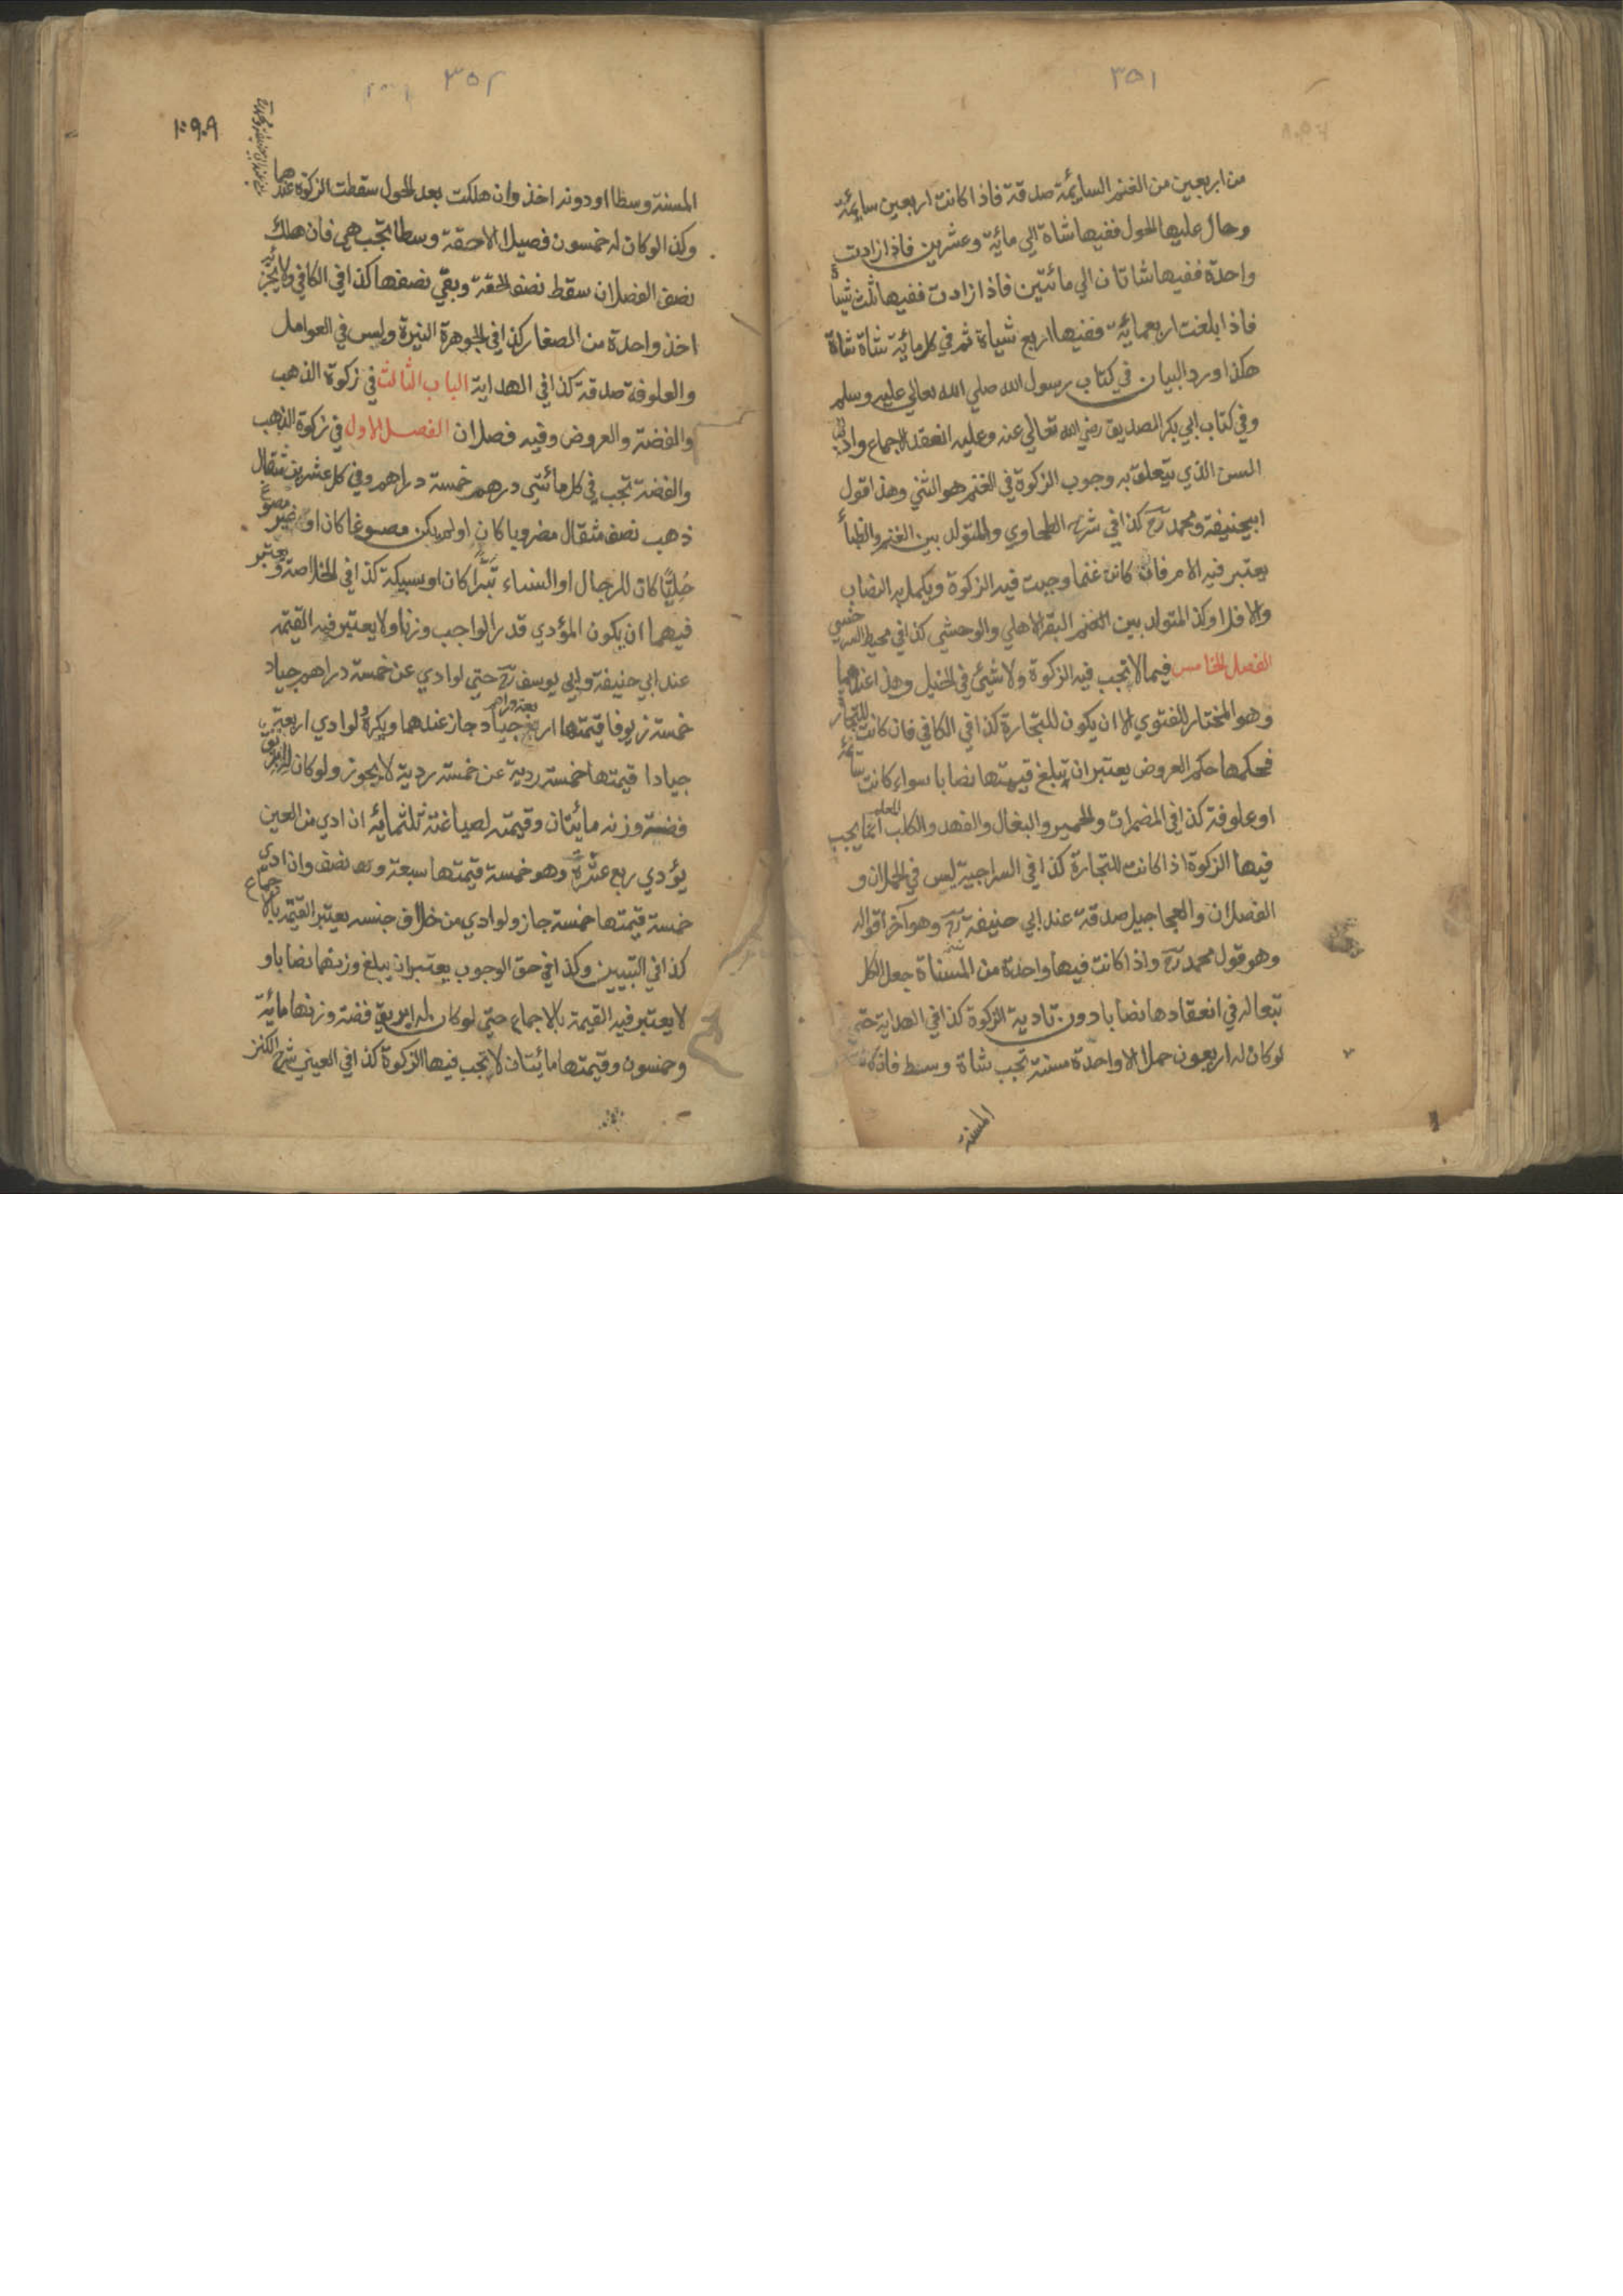 ٣٥١
من اربعين من الغنم السايمة صدقة فاذا كانت اربعين سايمة
وحال عليها الحول ففيها شاة الي مائية وعشرين فاذا زادت
واحدة ففيها شاتان الي مائتين فاذا زادت ففيها ثلث شياة
فاذا بلغت اربعمائية ففيها اربع شياة ثم في كل مائية شاة شاة
هكذا ورد البيان في كتاب رسول الله صلي الله تعالي عليه وسلم
وفي كتاب ابي بكر الصديق رضي الله تعالي عنه وعليه انعقد الاجماع
السن الذي يتعلق به وجوب الزكوة في الغنم هو الثني وهذا قول
ابيحنيفة ومحمد رح كذا في شرح الطحاوي والمتولد بين الغنم والظبأ
يعتبر فيه الام فان كانت غنما وجبت فيه الزكوة ويكمل به النصاب
والا فلا وكذا المتولد بين الغنم البقر الاهلي والوحشي كذا في محيط السرخسي
الفصل الخامس فيما لا تجب فيه الزكوة ولا شئ في الخيل وهذا عندهما
وهو المختار للفتوي الا ان يكون للتجارة كذا في الكافي فان كانت للتجارة
فحكمها حكم العروض يعتبر ان يبلغ قيمتها نصابا سواء كانت سائمة
او علوفة كذا في المضمرات والحمير والبغال والفهد والكلب المعلم انما يجب
فيها الزكوة اذا كانت للتجارة كذا في السراجية ليس في الحملان و
الفصلان والعجاجيل صدقة عند ابي حنيفة رح وهو آخر اقواله
وهو قول محمد رح واذا كانت فيها واحدة من المسناة جعل الكل
تبعا له في انعقادها نصابا دون تادية الزكوة كذا في الهداية حتي
لو كان له اربعون حملا الا واحدة مسنة تجب شاة وسط فان كانت
المسنة
٣٥٢
١٠٩٠٩
المسنة وسطا او دونه اخذ وان هلكت بعد الحول سقطت الزكوة عندهما
وكذا لو كان له خمسون فصيلا الا حقة وسطا تجب هي فان هلك
نصف الفصلان سقط نصف الحقة وبقي نصفها كذا في الكافي ولا يجز
اخذ واحدة من الصغار كذا في الجوهرة النيرة وليس في العوامل
والعلوفة صدقة كذا في الهداية الباب الثالث في زكوة الذهب
والفضة والعروض وفيه فصلان الفصل الاول في زكوة الذهب
والفضة تجب في كل مائتي درهم خمسة دراهم وفي كل عشرين مثقال
ذهب نصف مثقال مضروبا كان او لم يكن مصوغا كان او غير مصوغ
حليا كان للرجال او النساء تبرا كان او سبيكة كذا في الخلاصة ويعتبر
فيهما ان يكون المؤدي قدر الواجب وزنا ولا يعتبر فيه القيمة
عند ابي حنيفة وابي يوسف رح حتي لو ادي عن خمسة دراهم جياد
خمسة زيوفا قيمتها اربعة دراهم جياد جاز عندهما ويكره ولو ادي اربعة
جيادا قيمتها خمسة ردية عن خمسة ردية لا يجوز ولو كان له ابريق
فضة وزنه مايتان وقيمته لصياغته ثلثمائة ان ادي من العين
يؤدي ربع عشرة وهو خمسة قيمتها سبعة ونصف وان ادي
خمسة قيمتها خمسة جاز ولو ادي من خلاف جنسه يعتبر القيمة بالاجماع
كذا في التبيين وكذا في حق الوجوب يعتبر ان يبلغ وزنهما نصابا و
لا يعتبر فيه القيمة بالاجماع حتي لو كان له ابريق فضة وزنها مائة
وخمسون وقيمتها مائتان لا تجب فيها الزكوة كذا في العيني شرح الكنز